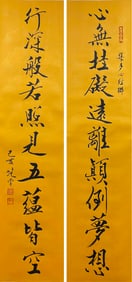 心無挂礙遠離顛倒夢想
行深般若照見五蘊皆空